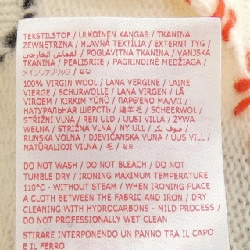 TEKSTILSTOF / ULKOINEN KANGAS / TKANINA
ZEWNETRZNA / HLAVNÁ TEXTÍLIA / EXTERNT TYG /
POGLAVITNA TKANINA / VANJSKA
TKANINA / PEALISRIIE / PAGRINDINE MEDŽIAGA /
100% VIRGIN WOOL / LANA VERGINE / LAINE
VIERGE / SCHURWOLLE / LANA VIRGEN / LÃ
VIRGEM / KIRKIM YÜNÜ / ПАРΘΕΝΟ ΜΑΛΛΙ /
НАТУРАЛЬНАЯ ШЕРСТЬ / SCHEERWOL /
STŘIŽNÍ VLNA / REN ULD / UUSI VILLA / ŻYWA
WEŁNA / STRIŽNÁ VLNA / NY ULL /
RUNSKA VOLNA / DJEVIČANSKA VUNA / UUS VILL /
NATŪRALIOJI VILNA /
DO NOT WASH / DO NOT BLEACH / DO NOT
TUMBLE DRY / IRONING MAXIMUM TEMPERATURE
110°C - WITHOUT STEAM / WHEN IRONING PLACE
A CLOTH BETWEEN THE FABRIC AND IRON / DRY
CLEANING WITH HYDROCARBONS - MILD PROCESS /
DO NOT PROFESSIONALLY WET CLEAN
STIRARE INTERPONENDO UN PANNO TRA IL CAPO
E IL FERRO